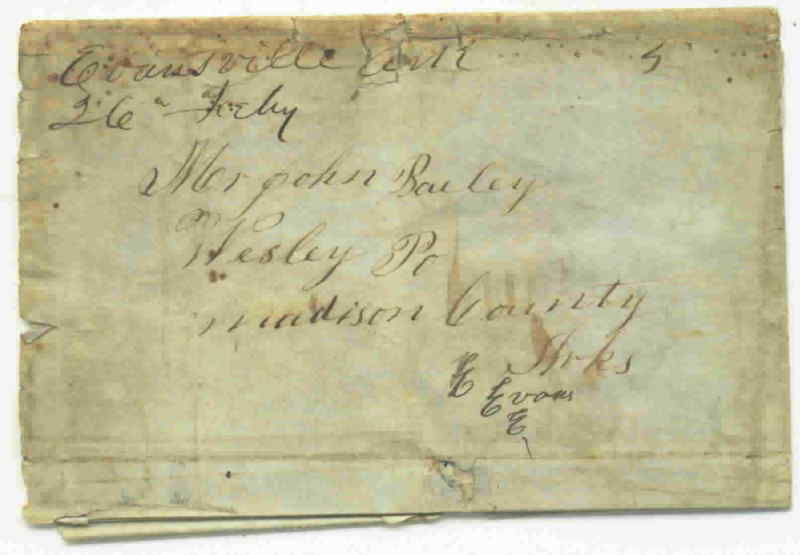 Evansville Ark 5
26th Feby
Mr John Bailey
Wesley Po
madison County
Arks
E
Evans
E